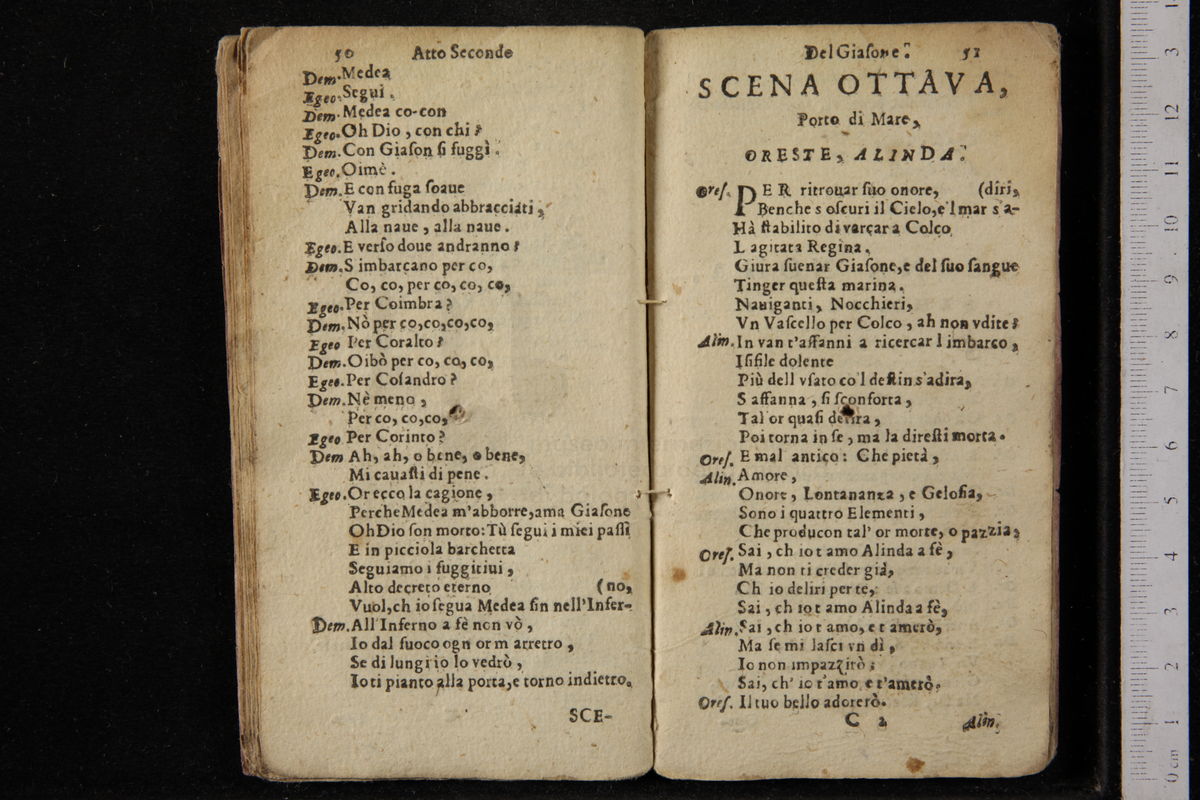 50 Atto Secondo
Dem. Medea
Egeo. Segui.
Dem. Medea co-con
Egeo. Oh Dio, con chi?
Dem. Con Giaſon ſi fuggì.
Egeo. Oimè.
Dem. E con fuga ſoaue
Van gridando abbracciati,
Alla naue, alla naue.
Egeo. E verſo doue andranno?
Dem. S imbarcano per co,
Co, co, per co, co, co,
Egeo. Per Coimbra?
Dem. Nò per co, co, co, co,
Egeo Per Coralto?
Dem. Oibò per co, co, co,
Egeo. Per Coſandro?
Dem. Nè meno,
Per co, co, co,
Egeo Per Corinto?
Dem Ah, ah, o bene, o bene,
Mi cauaſti di pene.
Egeo. Or ecco la cagione,
Perche Medea m'abborre, ama Giaſone
Oh Dio ſon morto: Tù ſegui i miei paſſi
E in picciola barchetta
Seguiamo i fuggitiui,
Alto decreto eterno (no,
Vuol, ch io ſegua Medea ſin nell'Infer-
Dem. All'Inferno a fè non vò,
Io dal fuoco ogn or m arretro,
Se di lungi io lo vedrò,
Io ti pianto alla porta, e torno indietro.
SCE-
Del Giaſone. 51
SCENA OTTAVA,
Porto di Mare,
ORESTE, ALINDA.
Oreſ. PER ritrouar ſuo onore, (diri,
Benche s oſcuri il Cielo, e'l mar s'a-
Hà ſtabilito di varcar a Colco
L agitata Regina.
Giura ſuenar Giaſone, e del ſuo ſangue
Tinger queſta marina.
Nauiganti, Nocchieri,
Vn Vaſcello per Colco, ah non vdite?
Alin. In van t'affanni a ricercar l imbarco,
Iſifile dolente
Più dell vſato co'l deſtin s'adira,
S affanna, ſi ſconforta,
Tal or quaſi delira,
Poi torna in ſe, ma la direſti morta.
Oreſ. E mal antico: Che pietà,
Alin. Amore,
Onore, Lontananza, e Geloſia,
Sono i quattro Elementi,
Che producon tal' or morte, o pazzia,
Oreſ. Sai, ch io t amo Alinda a fè,
Ma non ti creder già,
Ch io deliri per te,
Sai, ch io t amo Alinda a fè,
Alin. Sai, ch io t amo, e t amerò,
Ma ſe mi laſci vn dì,
Io non impazzirò;
Sai, ch' io t'amo e t'amerò.
Oreſ. Il tuo bello adorerò.
C 2 Alin.